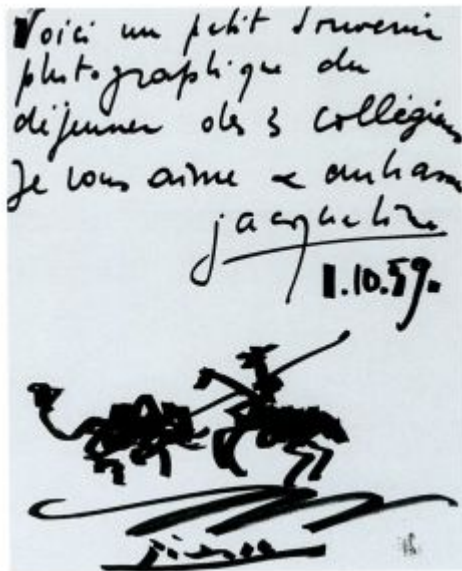 Voici un petit souvenir
photographique du
déjeuner des 3 collégiens
Je vous aime
Jacqueline
1.10.59.
Picasso